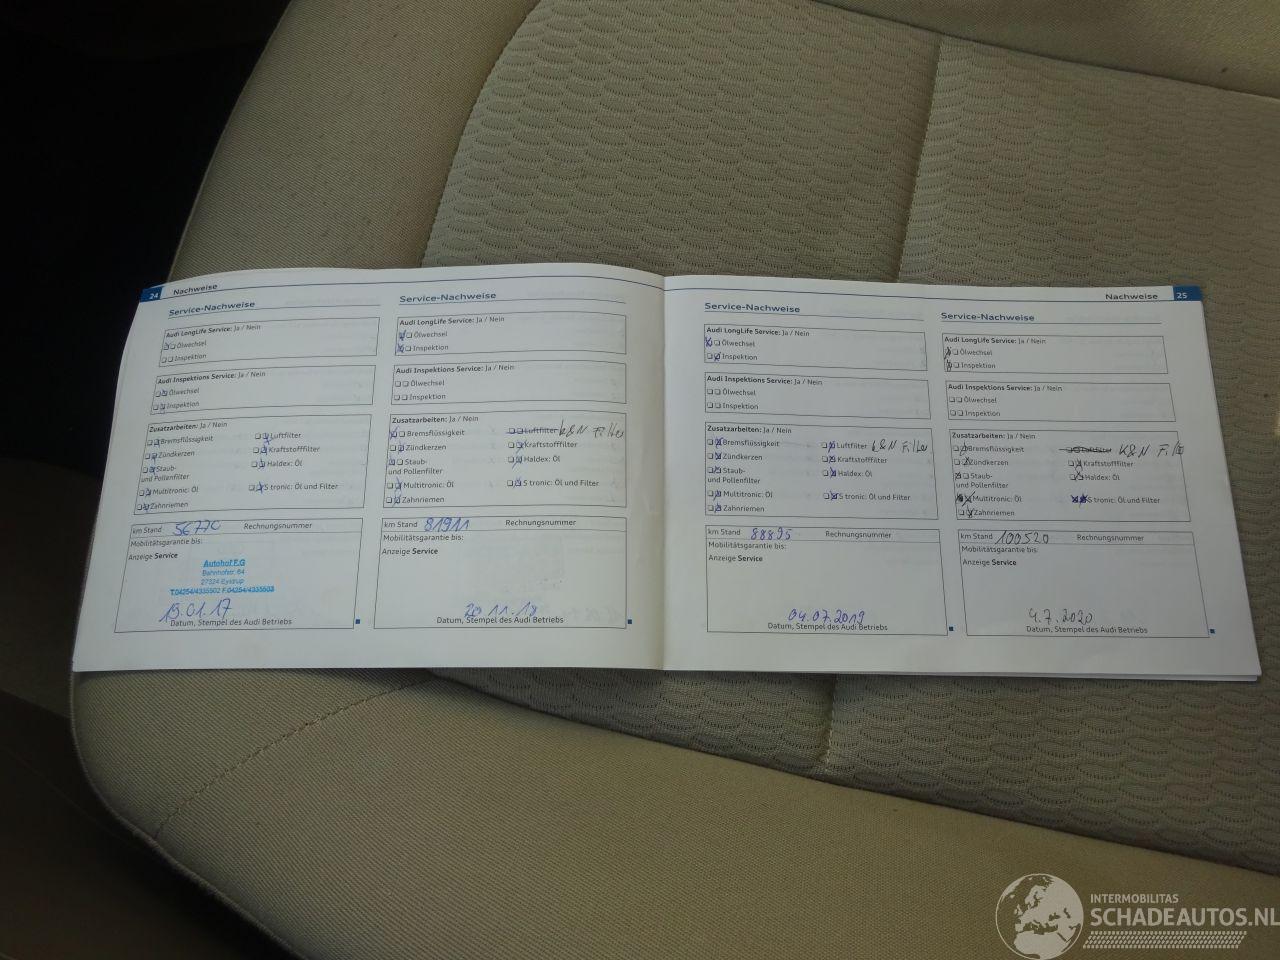 24 Nachweise
Service-Nachweise
Audi LongLife Service: Ja / Nein
Ölwechsel
Inspektion
Audi Inspektions Service: Ja / Nein
Ölwechsel
Inspektion
Zusatzarbeiten: Ja / Nein
Bremsflüssigkeit
Luftfilter
Zündkerzen
Kraftstofffilter
Staub-
und Pollenfilter
Haldex: Öl
Multitronic: Öl
S tronic: Öl und Filter
Zahnriemen
km Stand 56770 Rechnungsnummer
Mobilitätsgarantie bis:
Anzeige Service
Autohof F.G
Bahnhofstr. 64
27324 Eystrup
T.04254/4335502 F.04254/4335503
19.01.17
Datum, Stempel des Audi Betriebs
Service-Nachweise
Audi LongLife Service: Ja / Nein
Ölwechsel
Inspektion
Audi Inspektions Service: Ja / Nein
Ölwechsel
Inspektion
Zusatzarbeiten: Ja / Nein
Bremsflüssigkeit
Luftfilter K&N Filter
Zündkerzen
Kraftstofffilter
Staub-
und Pollenfilter
Haldex: Öl
Multitronic: Öl
S tronic: Öl und Filter
Zahnriemen
km Stand 81911 Rechnungsnummer
Mobilitätsgarantie bis:
Anzeige Service
20.11.18
Datum, Stempel des Audi Betriebs
Nachweise 25
Service-Nachweise
Audi LongLife Service: Ja / Nein
Ölwechsel
Inspektion
Audi Inspektions Service: Ja / Nein
Ölwechsel
Inspektion
Zusatzarbeiten: Ja / Nein
Bremsflüssigkeit
Luftfilter K&N Filter
Zündkerzen
Kraftstofffilter
Staub-
und Pollenfilter
Haldex: Öl
Multitronic: Öl
S tronic: Öl und Filter
Zahnriemen
km Stand 88895 Rechnungsnummer
Mobilitätsgarantie bis:
Anzeige Service
04.07.2019
Datum, Stempel des Audi Betriebs
Service-Nachweise
Audi LongLife Service: Ja / Nein
Ölwechsel
Inspektion
Audi Inspektions Service: Ja / Nein
Ölwechsel
Inspektion
Zusatzarbeiten: Ja / Nein
Bremsflüssigkeit
Luftfilter K&N Filter
Zündkerzen
Kraftstofffilter
Staub-
und Pollenfilter
Haldex: Öl
Multitronic: Öl
S tronic: Öl und Filter
Zahnriemen
km Stand 100520 Rechnungsnummer
Mobilitätsgarantie bis:
Anzeige Service
4.7.2020
Datum, Stempel des Audi Betriebs
INTERMOBILITAS
SCHADEAUTOS.NL